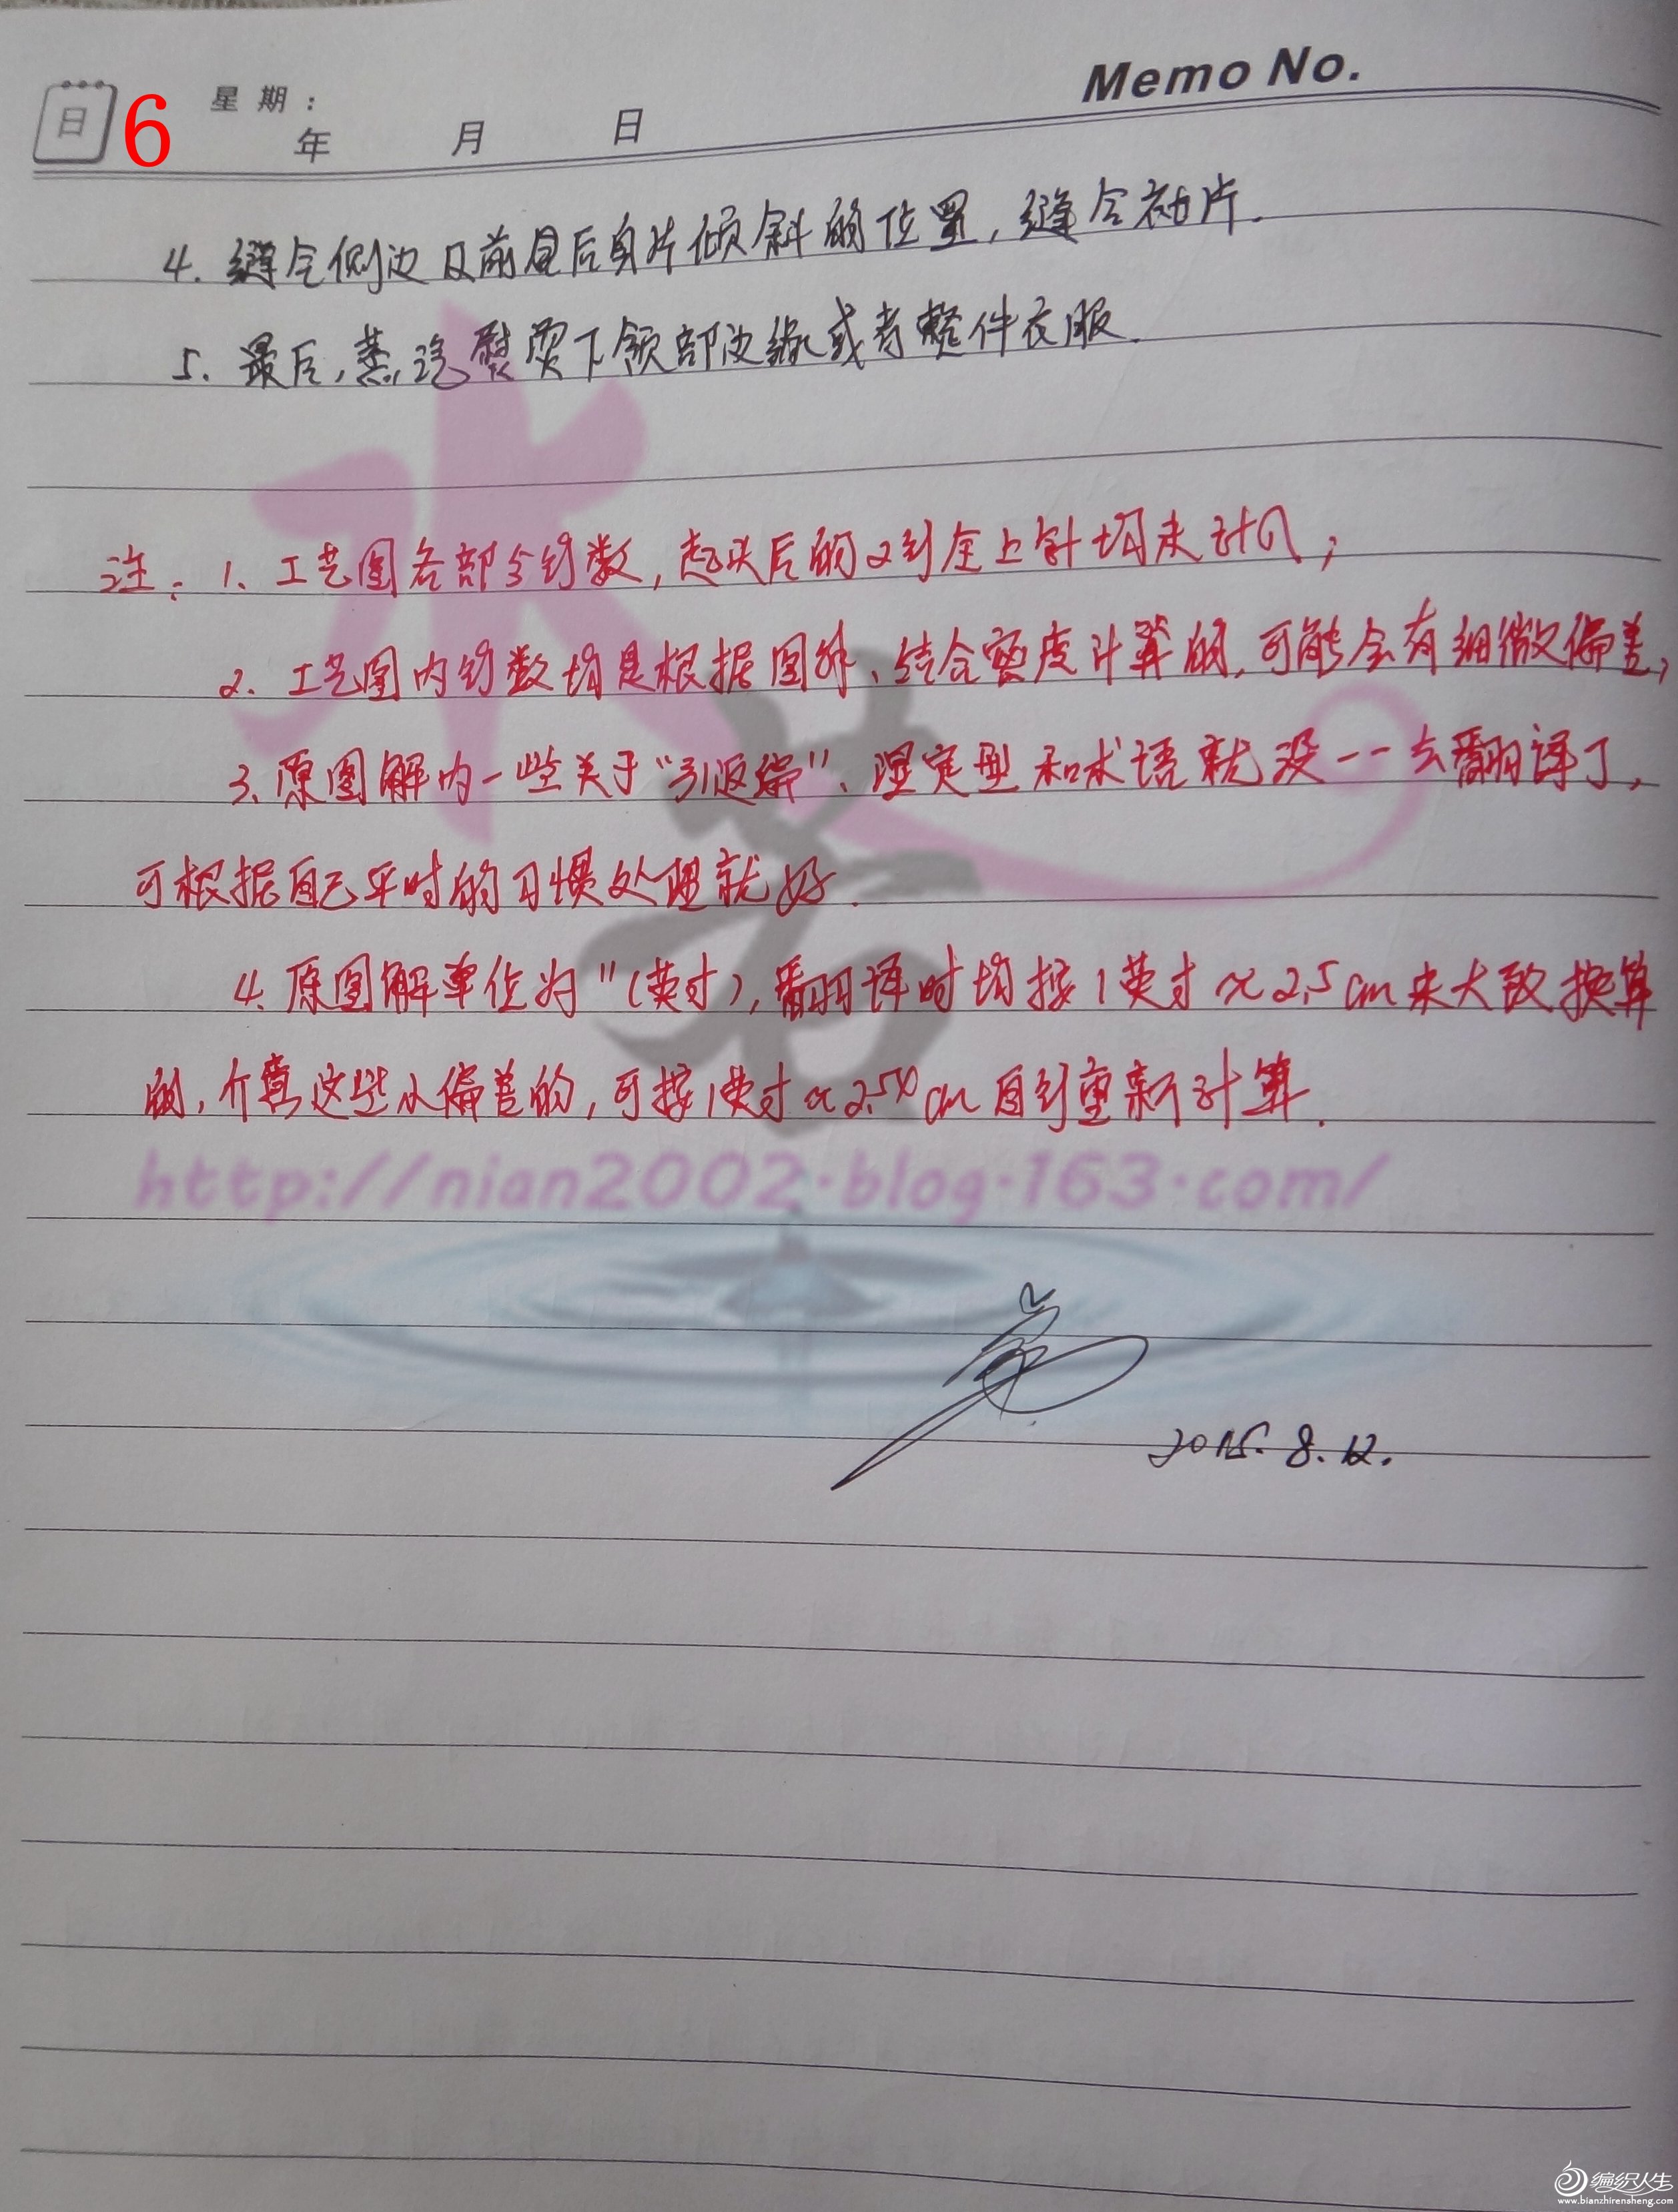 Memo No.
日 6 星期:
年 月 日
4. 缝合侧边及前身后身片倾斜的位置, 缝合袖片.
5. 最后, 蒸汽熨烫下领部边缘或者整件衣服.
注: 1. 工艺图各部分行数, 起头后的2行全上针均未计入;
2. 工艺图内行数均是根据图解、结合密度计算的, 可能会有细微偏差;
3. 原图解内一些关于“引返编”、湿定型和术语就没一一去翻译了,
可根据自己平时的习惯处理就好.
4. 原图解单位为"(英寸), 翻译时均按1英寸≈2.5cm来大致换算
的, 介意这些小偏差的, 可按1英寸≈2.54cm自行重新计算.
水
http://nian2002.blog.163.com/
2015.8.12.
编织人生
www.bianzhirensheng.com